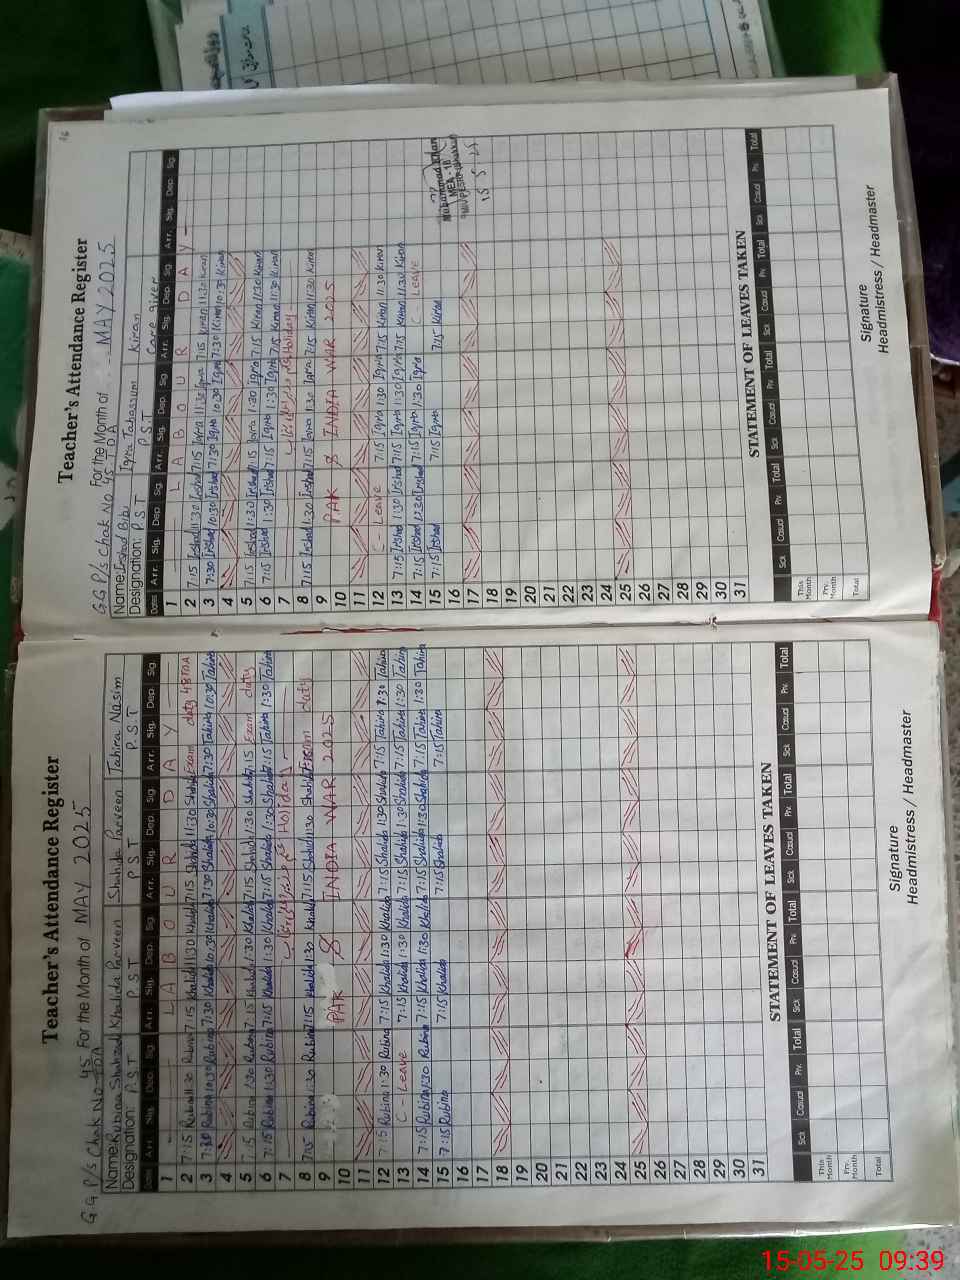 Teacher's Attendance Register
G G P/s Chak No 45 TDA For the Month of MAY 2025
Name: Rubina Shahzadi Khalida Parveen Shahida Parveen Tahira Nasim
Designation: P.S.T P.S.T P.S.T P.S.T
Dates Arr. Sig. Dep. Sig. Arr. Sig. Dep. Sig. Arr. Sig. Dep. Sig. Arr. Sig. Dep. Sig.
1 L A B O U R D A Y
2 7:15 Rubina 11:30 Rubina 7:15 Khalida 11:30 Khalida 7:15 Shahida 11:30 Shahida Exam duty 48 TDA
3 7:30 Rubina 10:30 Rubina 7:30 Khalida 10:30 Khalida 7:30 Shahida 10:30 Shahida 7:30 Tahira 10:30 Tahira
4
5 7:15 Rubina 1:30 Rubina 7:15 Khalida 1:30 Khalida 7:15 Shahida 1:30 Shahida 7:15 Exam duty
6 7:15 Rubina 1:30 Rubina 7:15 Khalida 1:30 Khalida 7:15 Shahida 1:30 Shahida 7:15 Tahira 1:30 Tahira
7 Holiday
8 7:15 Rubina 1:30 Rubina 7:15 Khalida 1:30 Khalida 7:15 Shahida 11:30 Shahida Exam duty
9 PAK & INDIA WAR 2025
10
11
12 7:15 Rubina 1:30 Rubina 7:15 Khalida 1:30 Khalida 7:15 Shahida 1:30 Shahida 7:15 Tahira 1:30 Tahira
13 C - Leave 7:15 Khalida 1:30 Khalida 7:15 Shahida 1:30 Shahida 7:15 Tahira 1:30 Tahira
14 7:15 Rubina 1:30 Rubina 7:15 Khalida 1:30 Khalida 7:15 Shahida 1:30 Shahida 7:15 Tahira 1:30 Tahira
15 7:15 Rubina 7:15 Khalida 7:15 Shahida 7:15 Tahira
16
17
18
19
20
21
22
23
24
25
26
27
28
29
30
31
STATEMENT OF LEAVES TAKEN
Sick Casual Prv. Total Sick Casual Prv. Total Sick Casual Prv. Total Sick Casual Prv. Total
This Month
Prv. Month
Total
Signature
Headmistress / Headmaster
16
Teacher's Attendance Register
G G P/s Chak No 45 TDA For the Month of MAY 2025
Name: Irshad Bibi Iqra Tabassum Kiran
Designation: P.S.T P.S.T Care giver
Dates Arr. Sig. Dep. Sig. Arr. Sig. Dep. Sig. Arr. Sig. Dep. Sig. Arr. Sig. Dep. Sig.
1 L A B O U R D A Y
2 7:15 Irshad 11:30 Irshad 7:15 Iqra 11:30 Iqra 7:15 Kiran 11:30 Kiran
3 7:30 Irshad 10:30 Irshad 7:30 Iqra 10:30 Iqra 7:30 Kiran 10:30 Kiran
4
5 7:15 Irshad 1:30 Irshad 7:15 Iqra 1:30 Iqra 7:15 Kiran 11:30 Kiran
6 7:15 Irshad 1:30 Irshad 7:15 Iqra 1:30 Iqra 7:15 Kiran 11:30 Kiran
7 Holiday
8 7:15 Irshad 1:30 Irshad 7:15 Iqra 1:30 Iqra 7:15 Kiran 11:30 Kiran
9 PAK & INDIA WAR 2025
10
11
12 C - Leave 7:15 Iqra 1:30 Iqra 7:15 Kiran 11:30 Kiran
13 7:15 Irshad 1:30 Irshad 7:15 Iqra 1:30 Iqra 7:15 Kiran 11:30 Kiran
14 7:15 Irshad 12:30 Irshad 7:15 Iqra 1:30 Iqra C - Leave
15 7:15 Irshad 7:15 Iqra 7:15 Kiran
Muhammad
MEA - 18
15-5-25
16
17
18
19
20
21
22
23
24
25
26
27
28
29
30
31
STATEMENT OF LEAVES TAKEN
Sick Casual Prv. Total Sick Casual Prv. Total Sick Casual Prv. Total Sick Casual Prv. Total
This Month
Prv. Month
Total
Signature
Headmistress / Headmaster
15-05-25 09:39